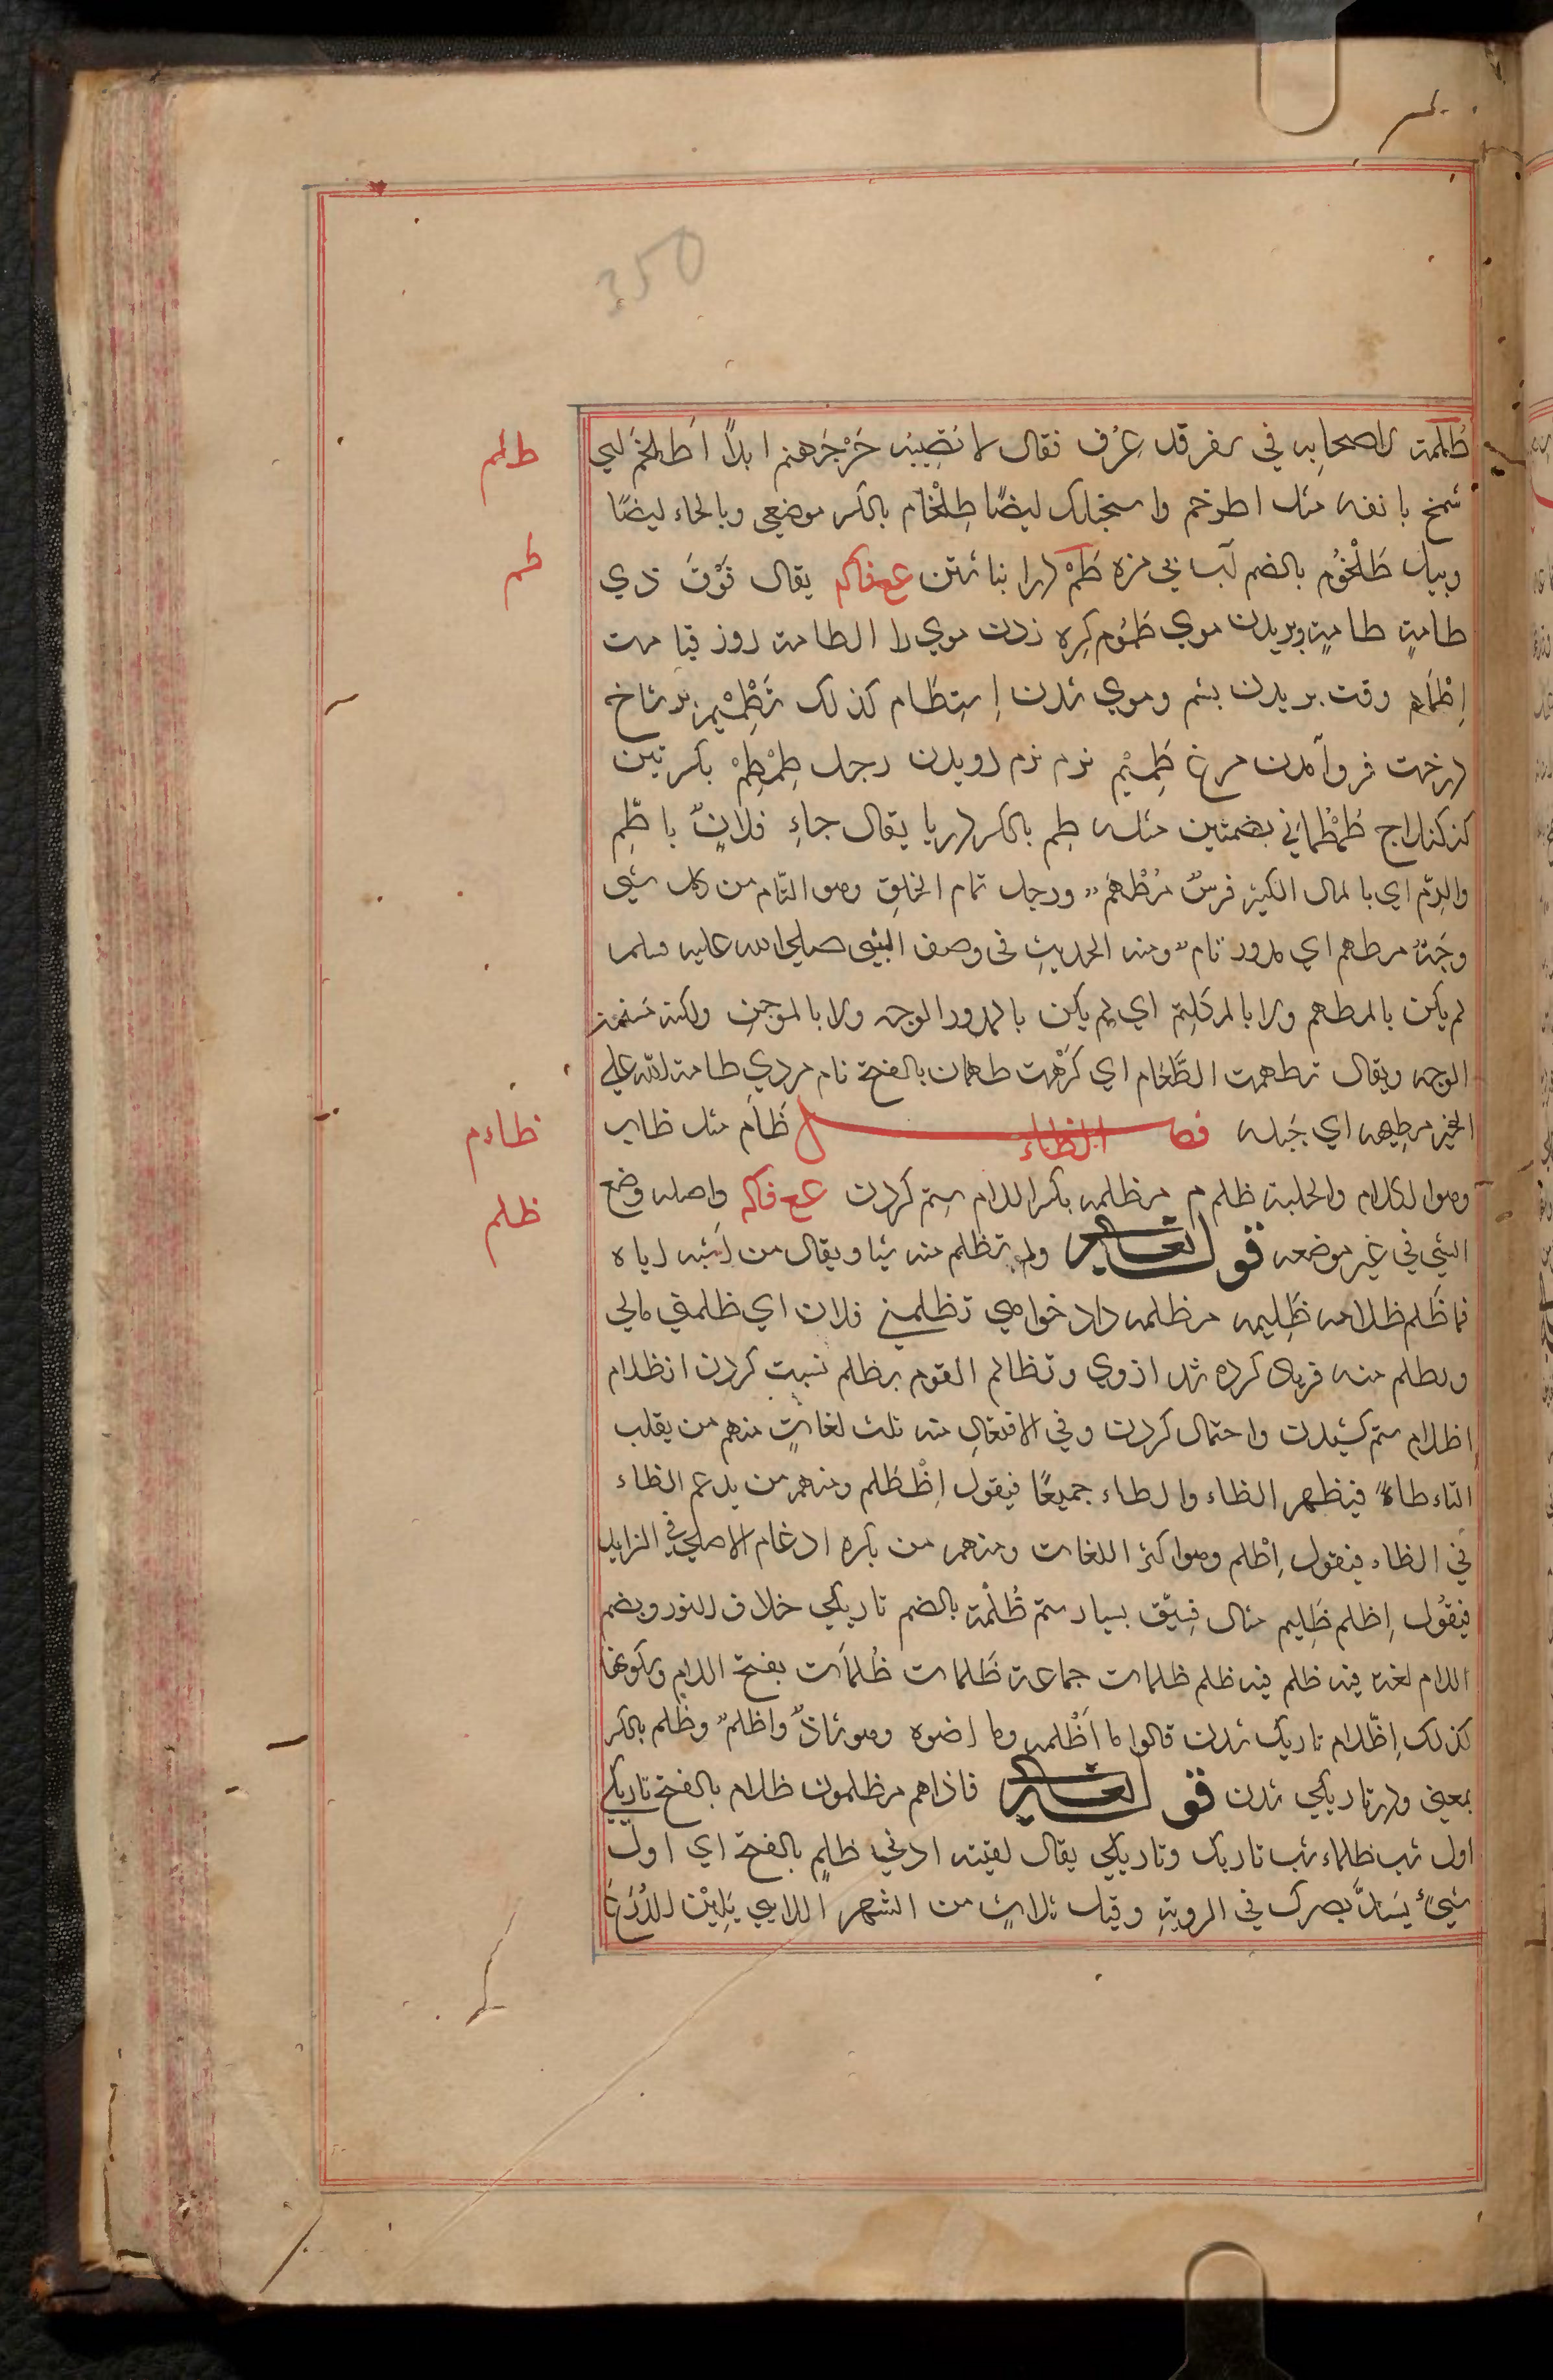 350
طلم
طُلمة لاصحابه في سفر قد عرف فقال لا تصيبه حرّ جهنم ابدًا اطلخم اي
شمخ بانفه مثل اطرخم واسحنكك ايضًا طِلْخام بالكسر موضعي وبالحاء ايضًا
طم
وبيل طُلْخُوم بالضم آب بي مزه طَمّ انباشتن ع ف ك م يقال فَوْقَ ذي
طامةٍ طامةٍ وبريدن موي طُمُوم كره زدن موي را الطامة روز قيامت
اِطْمَام وقت بريدن پشم وموي شدن اِستطمام كذلك تَطْمِيم بر شاخ
درخت فروآمدن مرغ طَمِيْم نرم نرم دويدن رجل طِمْطِمْ بكسرتين
كندكنلاج طُمْطُماني بضمتين مثله طِم بالكسر دريا يقال جاءِ فلانٌ بالطِّم
والرِّم اي بالمال الكثير فرسٌ مُطْهَمٌ ورجل تمام الخلقِ وهو التّام من كل شيٍ
وجهٌ مطهم اي مدور تامٌ ومنه الحديثِ في وصف النبي صلى الله عليه وسلم
لم يكن بالمطهم ولا بالمكلثم اي لم يكن بالمدور الوجه ولا بالموجن ولكنه مسنون
الوجه ويقال تطهمت الطَّعام اي كَرِهْت طهمان بالفتح نام مردي طامه الله على
الخير يطيمه اي جَبله فصل الظاء ظَاَم مثل ظاب
ظاءم
وهو الكلام والجلبة ظلم م مظلمه بكسر اللام ستم كردن ع ف ك م واصله وضع
ظلم
الشي في غير موضعه قوله تعالى ولم تظلم منه شيا ويقال من اشبه اباه
فما ظَلم ظلامه ظَلِيمه مظلمه داد خواهي تظلمني فلان اي ظلمني مالي
وتظلم منه فرياد كرده شد ازوي وتظالم القوم بظلم نسبت كردن انظلام
اِظلام ستم كشيدن واحتمال كردن وفي الافتعالِ منه ثلث لغاتٍ منهم من يقلب
التاء طاءً فيظهر الظاء والطاء جميعًا فيقول اِظْطَلم ومنهم من يدغم الظاء
في الطاء فيقول اِطْلم وهو اكثر اللغات ومنهم من يكره ادغام الاصلي في الزايد
فيقُول اِظلم ظَلِيم مثال فِسّيق بسيار ستم ظُلْمَة بالضم تاريكي خلاف النور وبضم
اللام لغة فيه ظلم فيه ظلم ظلمات جماعة ظَلمات ظُلمَات بفتح اللام وسكونها
كذلك اِظّلام تاريك شدن قالوا ما اَظْلمه وما اضوه وهو شاذٌ واظلمٌ وظلم بالكسر
بمعني ودر تاريكي شدن قوله تعالى فاذاهم مظلمون ظلام بالفتح تاريكي
اول شب ظلماء شب تاريك وتاريكي يقال لقيته ادني ظلمٍ بالفتح اي اول
شيءٌ يَسُدُّ بصرك في الرويةِ وقيل ثلاثٍ من الشهر اللاتي يَلِيْنَ الدُّرَعَ